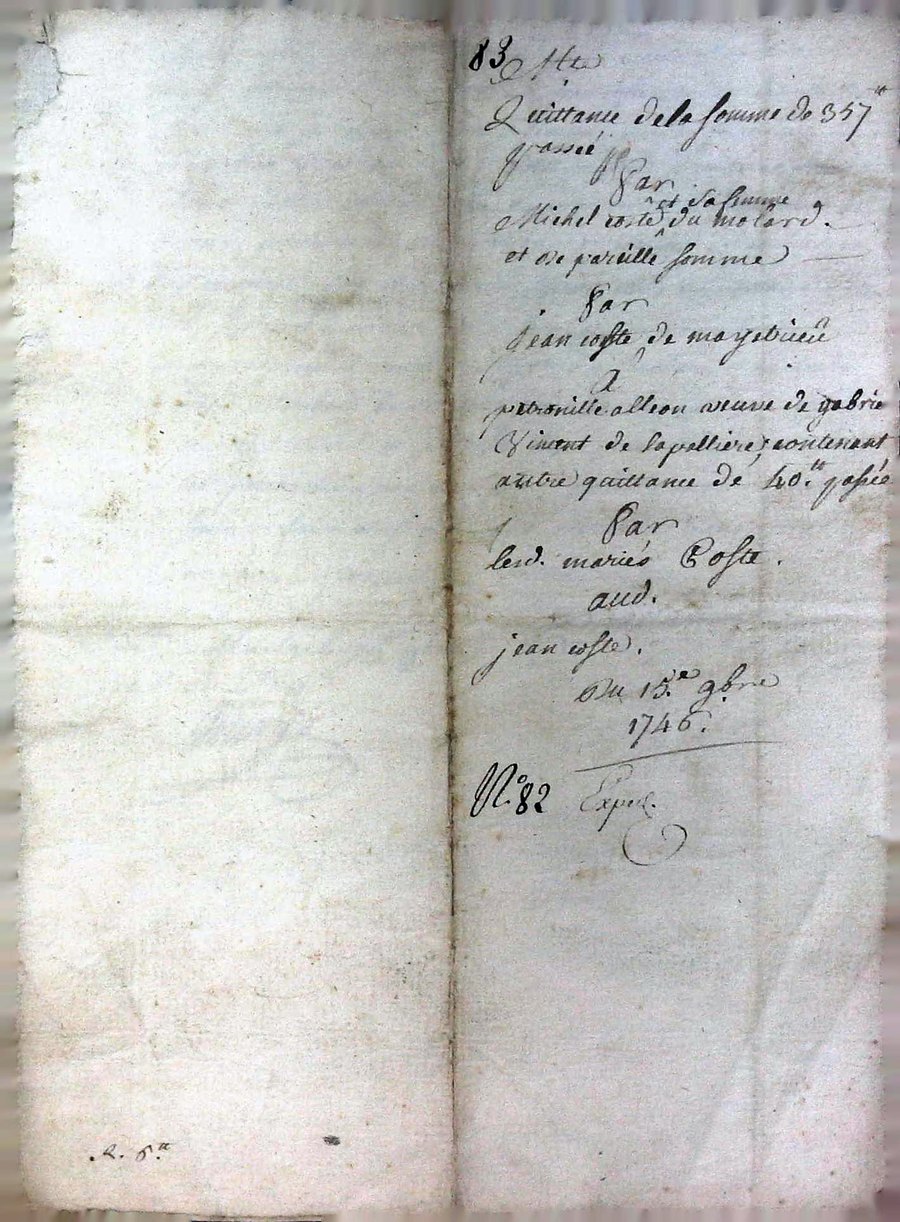 83
Quittance de la somme de 357ᵗᵗ
passée
Par
et sa femme
Michel coste du molard.
et de pareille somme
Par
jean coste de mayetrieu
A
petronille alleon veuve de gabrie
Viment de lapelliere, contenant
autre quittance de 40.ᵗᵗ passée
Par
lesd. mariés Coste.
aud.
jean coste.
Du 15.ᵉ 9bre
1746.
N.° 82 Exped.
R. 6.ᵗᵗ